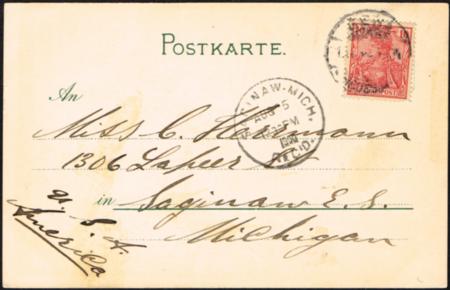 POSTKARTE.
An
Miss C. Herrmann
1306 Lapeer
in Saginaw E. S.
Michigan
U. S. A.
America
SAGINAW-MICH.
AUG 5
PM
REC'D.